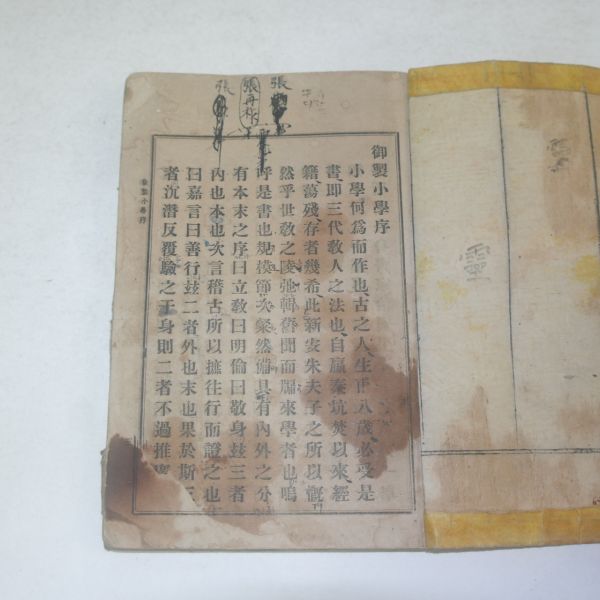 御製小學序
小學何爲而作也古之人生甫八歲必受是
書即三代敎人之法也自嬴秦坑焚以來經
籍蕩殘存者幾希此新安朱夫子之所以慨
然乎世敎之陵弛輯舊聞而牖來學者也嗚
呼是書也規模節次粲然備具有內外之分
有本末之序曰立敎曰明倫曰敬身玆三者
內也本也次言稽古所以摭往行而證之也
曰嘉言曰善行玆二者外也末也果於斯三
者沉潛反覆驗之于身則二者不過推
御製小學序
張
張
張
靈